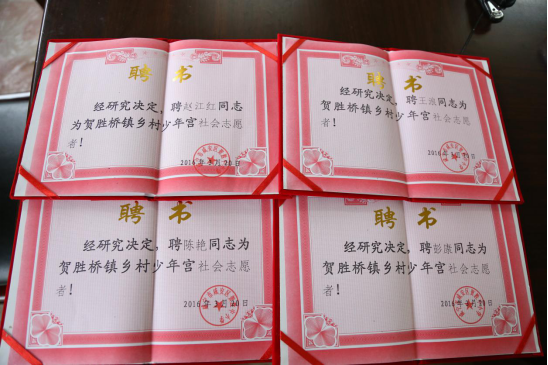 聘书
经研究决定,聘赵江红同志
为贺胜桥镇乡村少年宫社会志愿
者!
2016年 月20日
聘书
经研究决定,聘王淑同志为
贺胜桥镇乡村少年宫社会志愿
者!
2016年 月20日
聘书
经研究决定,聘陈艳同志为
贺胜桥镇乡村少年宫社会志愿
者!
2016年 月20日
聘书
经研究决定,聘彭漱同志为
贺胜桥镇乡村少年宫社会志愿
者!
2016年 月20日